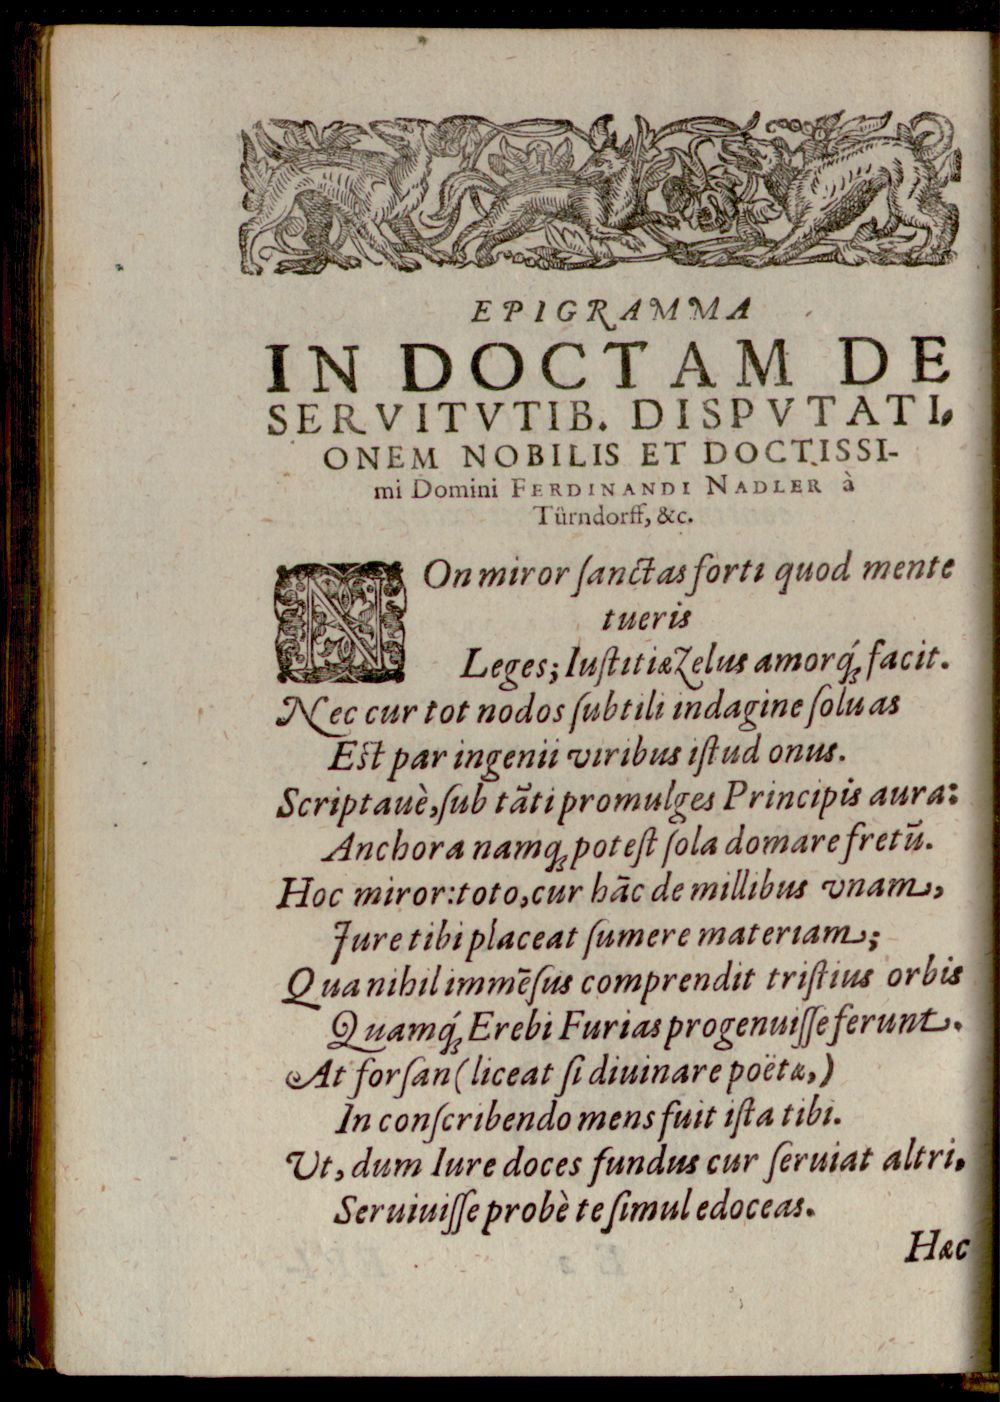 EPIGRAMMA
IN DOCTAM DE
SERVITVTIB. DISPVTATI,
ONEM NOBILIS ET DOCTISSI-
mi Domini FERDINANDI NADLER à
Tûrndorff, &c.
NOn miror ſanctas forti quod mente
tueris
Leges; Iuſtitiæ Zelus amorq́; facit.
Nec cur tot nodos ſubtili indagine ſoluas
Eſt par ingenii viribus iſtud onus.
Scriptauè, ſub tãti promulges Principis aura:
Anchora namq; poteſt ſola domare fretũ.
Hoc miror: toto, cur hãc de millibus vnam,
Jure tibi placeat ſumere materiam;
Qua nihil immẽſus comprendit triſtius orbis
Quamq́; Erebi Furias progenuiſſe ferunt.
At forſan (liceat ſi diuinare poëtæ,)
In conſcribendo mens fuit iſta tibi.
Vt, dum Iure doces fundus cur ſeruiat altri,
Seruiuiſſe probè te ſimul edoceas.
Hæc